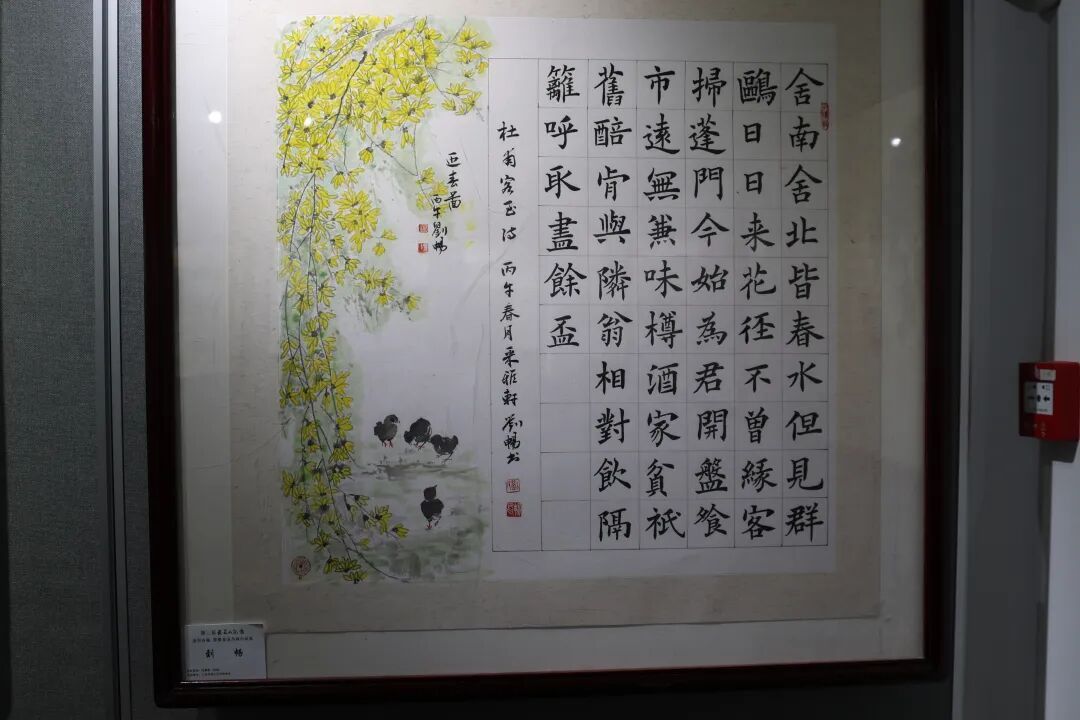 舍南舍北皆春水但見群
鷗日日来花径不曾緣客
掃蓬門今始為君開盤飧
市遠無兼味樽酒家貧祇
舊醅肯與隣翁相對飲隔
籬呼取盡餘盃
杜甫客至诗 丙午春月采雅軒劉暢书
迎春图
丙午劉暢
劉 暢